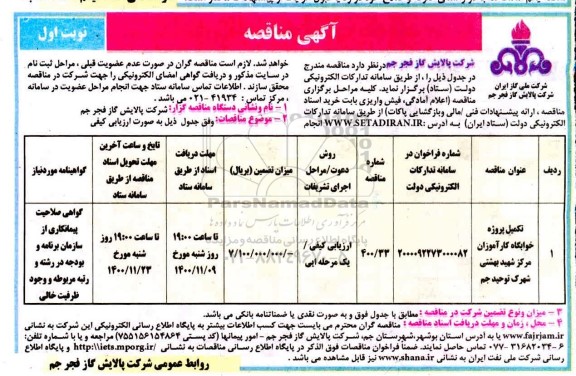 آگهی مناقصه
نوبت اول
شرکت ملی گاز ایران
شرکت پالایش گاز فجر جم
شرکت پالایش گاز فجر جم درنظر دارد مناقصه مندرج
در جدول ذیل را ، از طریق سامانه تدارکات الکترونیکی
دولت (ستاد) برگزار نماید. کلیه مراحل برگزاری
مناقصه (اعلام آمادگی، فیش واریزی بابت خرید اسناد
مناقصه ، ارائه پیشنهادات فنی /مالی وبازگشایی پاکات) از طریق سامانه تدارکات
الکترونیکی دولت (ستاد ایران) به آدرس :WWW.SETADIRAN.IR انجام
خواهد شد. لازم است مناقصه گران در صورت عدم عضویت قبلی ، مراحل ثبت نام
در سایت مذکور و دریافت گواهی امضای الکترونیکی را جهت شرکت در مناقصه
محقق سازند . اطلاعات تماس سامانه ستاد جهت انجام مراحل عضویت در سامانه
، مرکز تماس : ۴۱۹۳۴-۰۲۱ می باشد .
۱- نام ونشانی دستگاه مناقصه گزار: شرکت پالایش گاز فجر جم
۲- موضوع مناقصات: وفق جدول ذیل به صورت ارزیابی کیفی
ردیف | عنوان مناقصه | شماره فراخوان در سامانه تدارکات الکترونیکی دولت | شماره مناقصه | روش دعوت/مراحل اجرای تشریفات | میزان تضمین (ریال) | مهلت دریافت اسناد از طریق سامانه ستاد | تایخ و ساعت آخرین مهلت تحویل اسناد مناقصه از طریق سامانه ستاد | گواهینامه موردنیاز
۱ | تکمیل پروژه خوابگاه کارآموزان مرکز شهید بهشتی شهرک توحید جم | ۲۰۰۰۰۹۲۲۷۳۰۰۰۰۸۲ | ۴۰۰/۳۳ | ارزیابی کیفی / یک مرحله ایی | ۷/۱۰۰/۰۰۰/۰۰۰- | تا ساعت ۱۹:۰۰ روز شنبه مورخ ۱۴۰۰/۱۱/۰۹ | تا ساعت ۱۹:۰۰ روز شنبه مورخ ۱۴۰۰/۱۱/۲۳ | گواهی صلاحیت پیمانکاری از سازمان برنامه و بودجه در رشته و رتبه مربوطه و وجود ظرفیت خالی
۳- میزان ونوع تضمین شرکت در مناقصه : مطابق با جدول فوق و به صورت نقدی یا ضمانتنامه بانکی می باشد.
۴- محل ، زمان و مهلت دریافت اسناد مناقصه : مناقصه گران محترم می بایست جهت کسب اطلاعات بیشتر به پایگاه اطلاع رسانی الکترونیکی این شرکت به نشانی
www.fajrjam.ir یا به آدرس استان بوشهر،شهرستان جم، شرکت پالایش گاز فجر جم - امور پیمانها (کد پستی ۷۵۵۱۵۶۱۵۴۸۶۴) مراجعه و یا با شماره تلفن:
۶-۳۱۶۸۲۰۳۴-۰۷۷ تماس حاصل نمایند. ضمناً فراخوان مناقصات فوق الذکر در پایگاه اطلاع رسانی مناقصات به نشانی http://iets.mporg.ir/ و پایگاه اطلاع
رسانی شرکت ملی نفت ایران به نشانی www.shana.ir نیز قابل مشاهده می باشد .
روابط عمومی شرکت پالایش گاز فجر جم